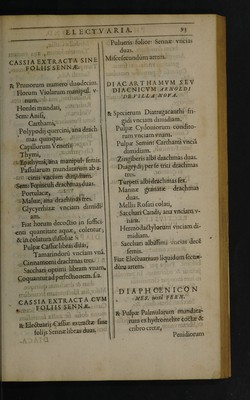 ELECTVARIA. 95
CASSIA EXTRACTA SINE
FOLIIS SENNÆ.
℞ Prunorum numero duodecim.
Florum Violarum manipul. v-
num.
Hordei mundati,
Sem: Anisi,
Carthami,
Polypodij quercini, ana drach
mas quinque.
Capillorum Veneris
Thymi,
Epithymi, ana manipul. semis.
Passularum mundatarum ab a-
cinis vnciam dimidiam.
Sem: Fœniculi drachmas duas.
Portulacæ,
Maluæ, ana drachmas tres.
Glycyrrhizæ vnciam dimidi-
am.
Fiat horum decoctio in suffici-
enti quantitate aquæ, colentur,
& in colatura dissolue
Pulpæ Cassiæ libras duas,
Tamarindorũ vnciam vnã.
Cinnamomi drachmas tres.
Sacchari optimi libram vnam.
Coquantur ad perfectionem. s.a.
CASSIA EXTRACTA CVM
FOLIIS SENNÆ.
℞ Electuarij Cassiæ extractæ sine
folijs Sennæ libras duas,
Pulueris folior: Sennæ vncias
duas.
Misce secundùm artem.
DIACARTHAMVM SEV
DIACNICVM ARNOLDI
DE VILLA NOVA.
℞ Specierum Diatragacanthi fri-
gidi vnciam dimidiam.
Pulpæ Cydoniorum condito-
rum vnciam vnam.
Pulpæ Semin: Carthami vnciã
dimidiam.
Zingiberis albi drachmas duas.
Diagrydij per se triti drachmas
tres.
Turpeti albi drachmas sex.
Mannæ granatæ drachmas
duas.
Mellis Rosati colati,
Sacchari Candi, ana vnciam v-
nam.
Hermodactylorum vnciam di-
midiam.
Sacchari albissimi vncias decẽ
semis.
Fiat Electuarium liquidum secun-
dùm artem.
DIAPHOENICON
Penidiorum
℞ Pulpæ Palmularum mundata-
rum ex hydromelite coctæ &
cribro cretæ,